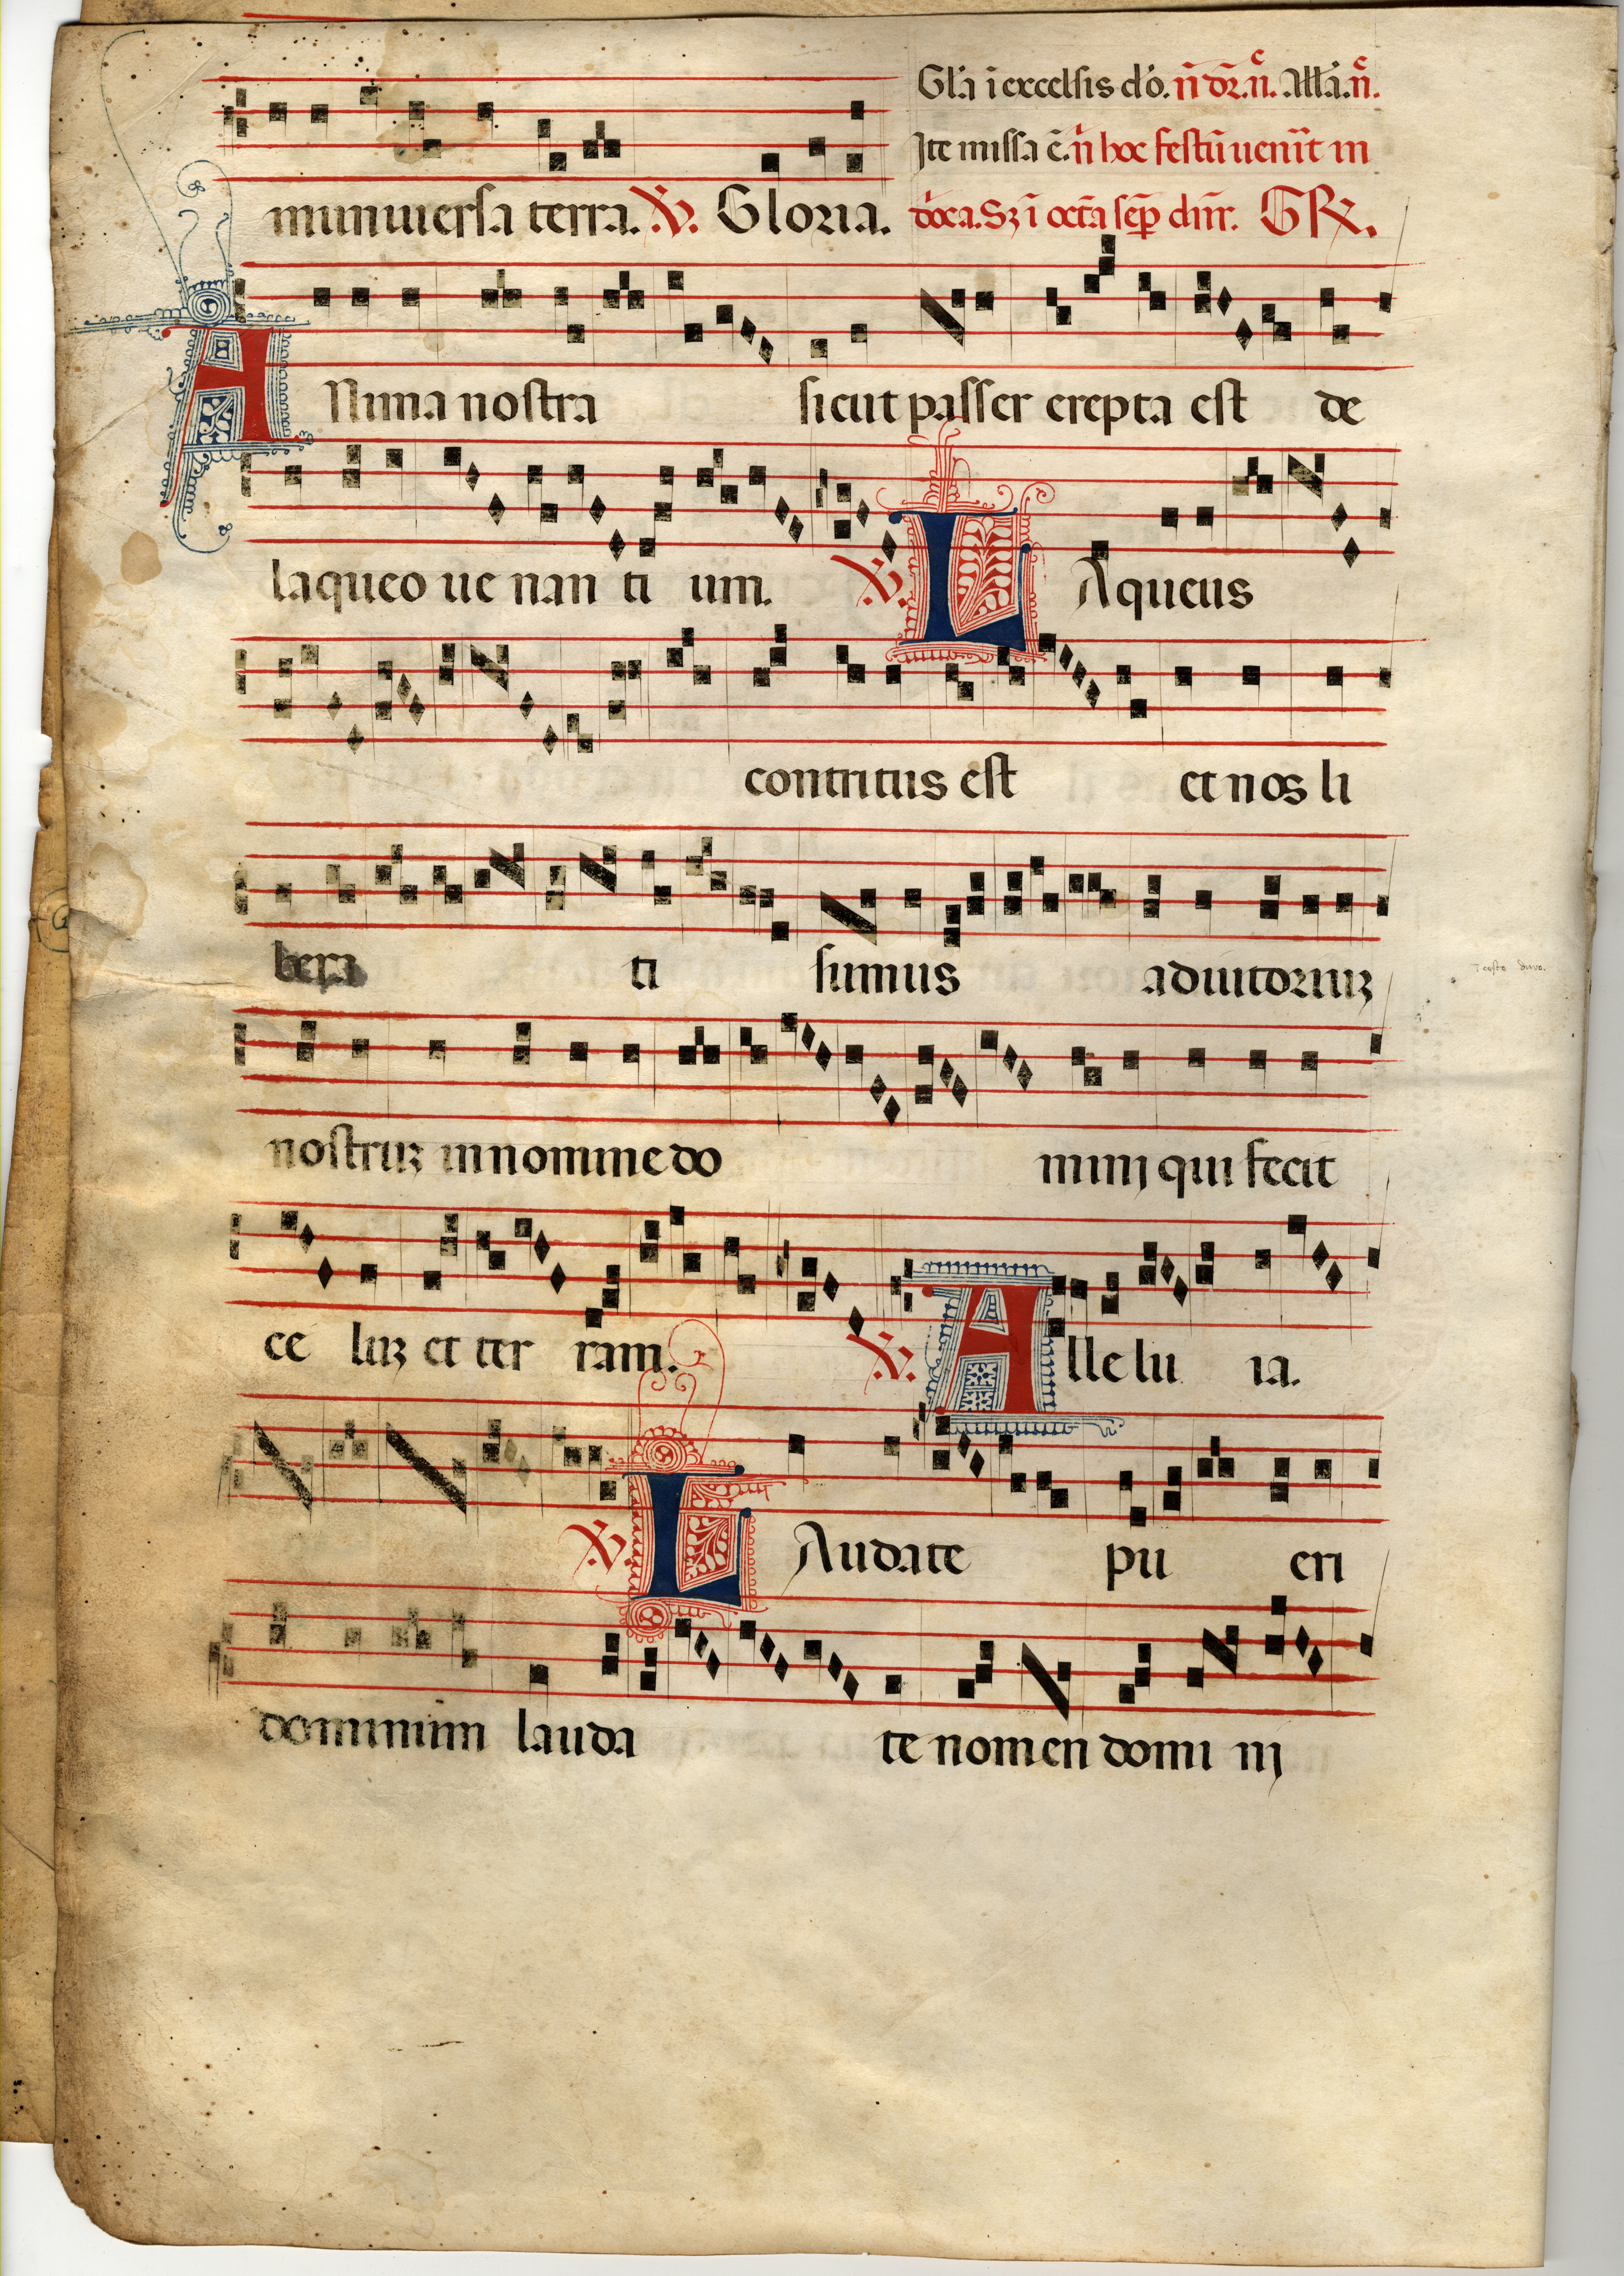 Gl'a i excelsis d'o. n̄ dr̄. n̄c. All'a. n̄c.
Ite missa ē. n̄ hoc festū uenīt in
munuiersa terra. V. Gloria. doīca. Sz ī octa sēp dn̄r. GR.
ANima nostra sicut passer erepta est de
laqueo ue nan ti um. V. LAqueus
contritus est et nos li
bera ti sumus adiutoriuz
nostruz in nomine do minj qui fecit
ce luz et ter ram. V. Alle lu ia.
V. LAudate pu eri
dominum lauda te nomen domi nj